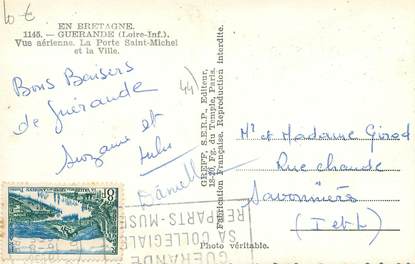 10 €
EN BRETAGNE.
1145. — GUERANDE (Loire-Inf.).
Vue aérienne. La Porte Saint-Michel
et la Ville.
Bons Baisers
de Guérande
Suzane et
Lulu
Danielle
44)
GREFF, S.E.R.P., Editeur,
18-20, Fg. du Temple, Paris.
Fabrication Française. Reproduction interdite.
Mr et Madame Girod
Rue chaude
Savonnières
(I et L)
Photo véritable.
GUERANDE
SA COLLEGIALE
REMPARTS-MUSEE